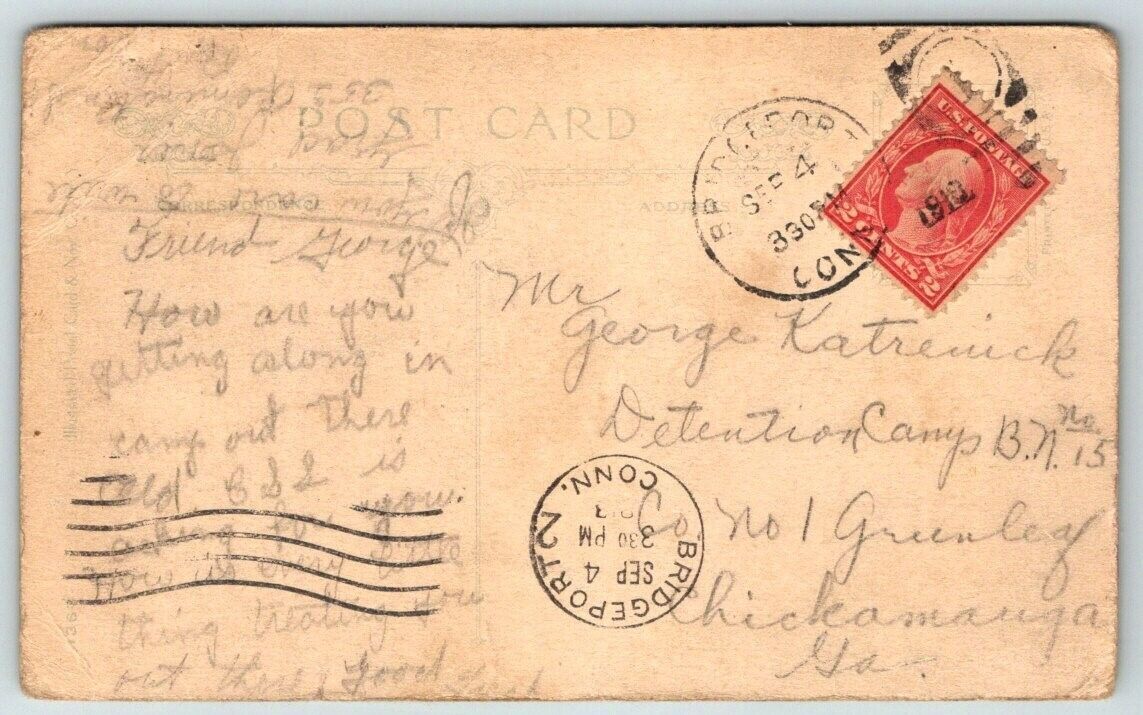 POST CARD
CORRESPONDENCE
ADDRESS
Friend George
How are you
getting along in
camp out there
Old is
asking for you.
How is every little
thing treating you
out there, Good
luck
from
BRIDGEPORT
SEP 4
330 PM
CONN
U.S. POSTAGE
2 CENTS 2
Mr
George Katrenick
Detention Camp B.N. No. 15
Co No 1 Greenleaf
Chickamauga
Ga.
BRIDGEPORT 2
SEP 4
330 PM
CONN.